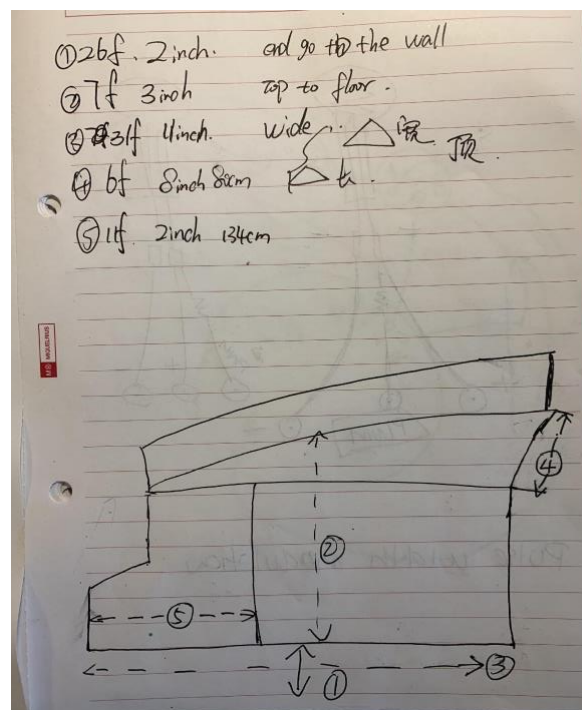 ① 26f. 2inch. end go to the wall
② 7f 3inch top to floor.
③ 31f 4inch. wide 宽 顶.
④ 6f 8inch 80cm 长.
⑤ 11f. 2inch 134cm
④
②
⑤
③
①
MIQUELRIUS